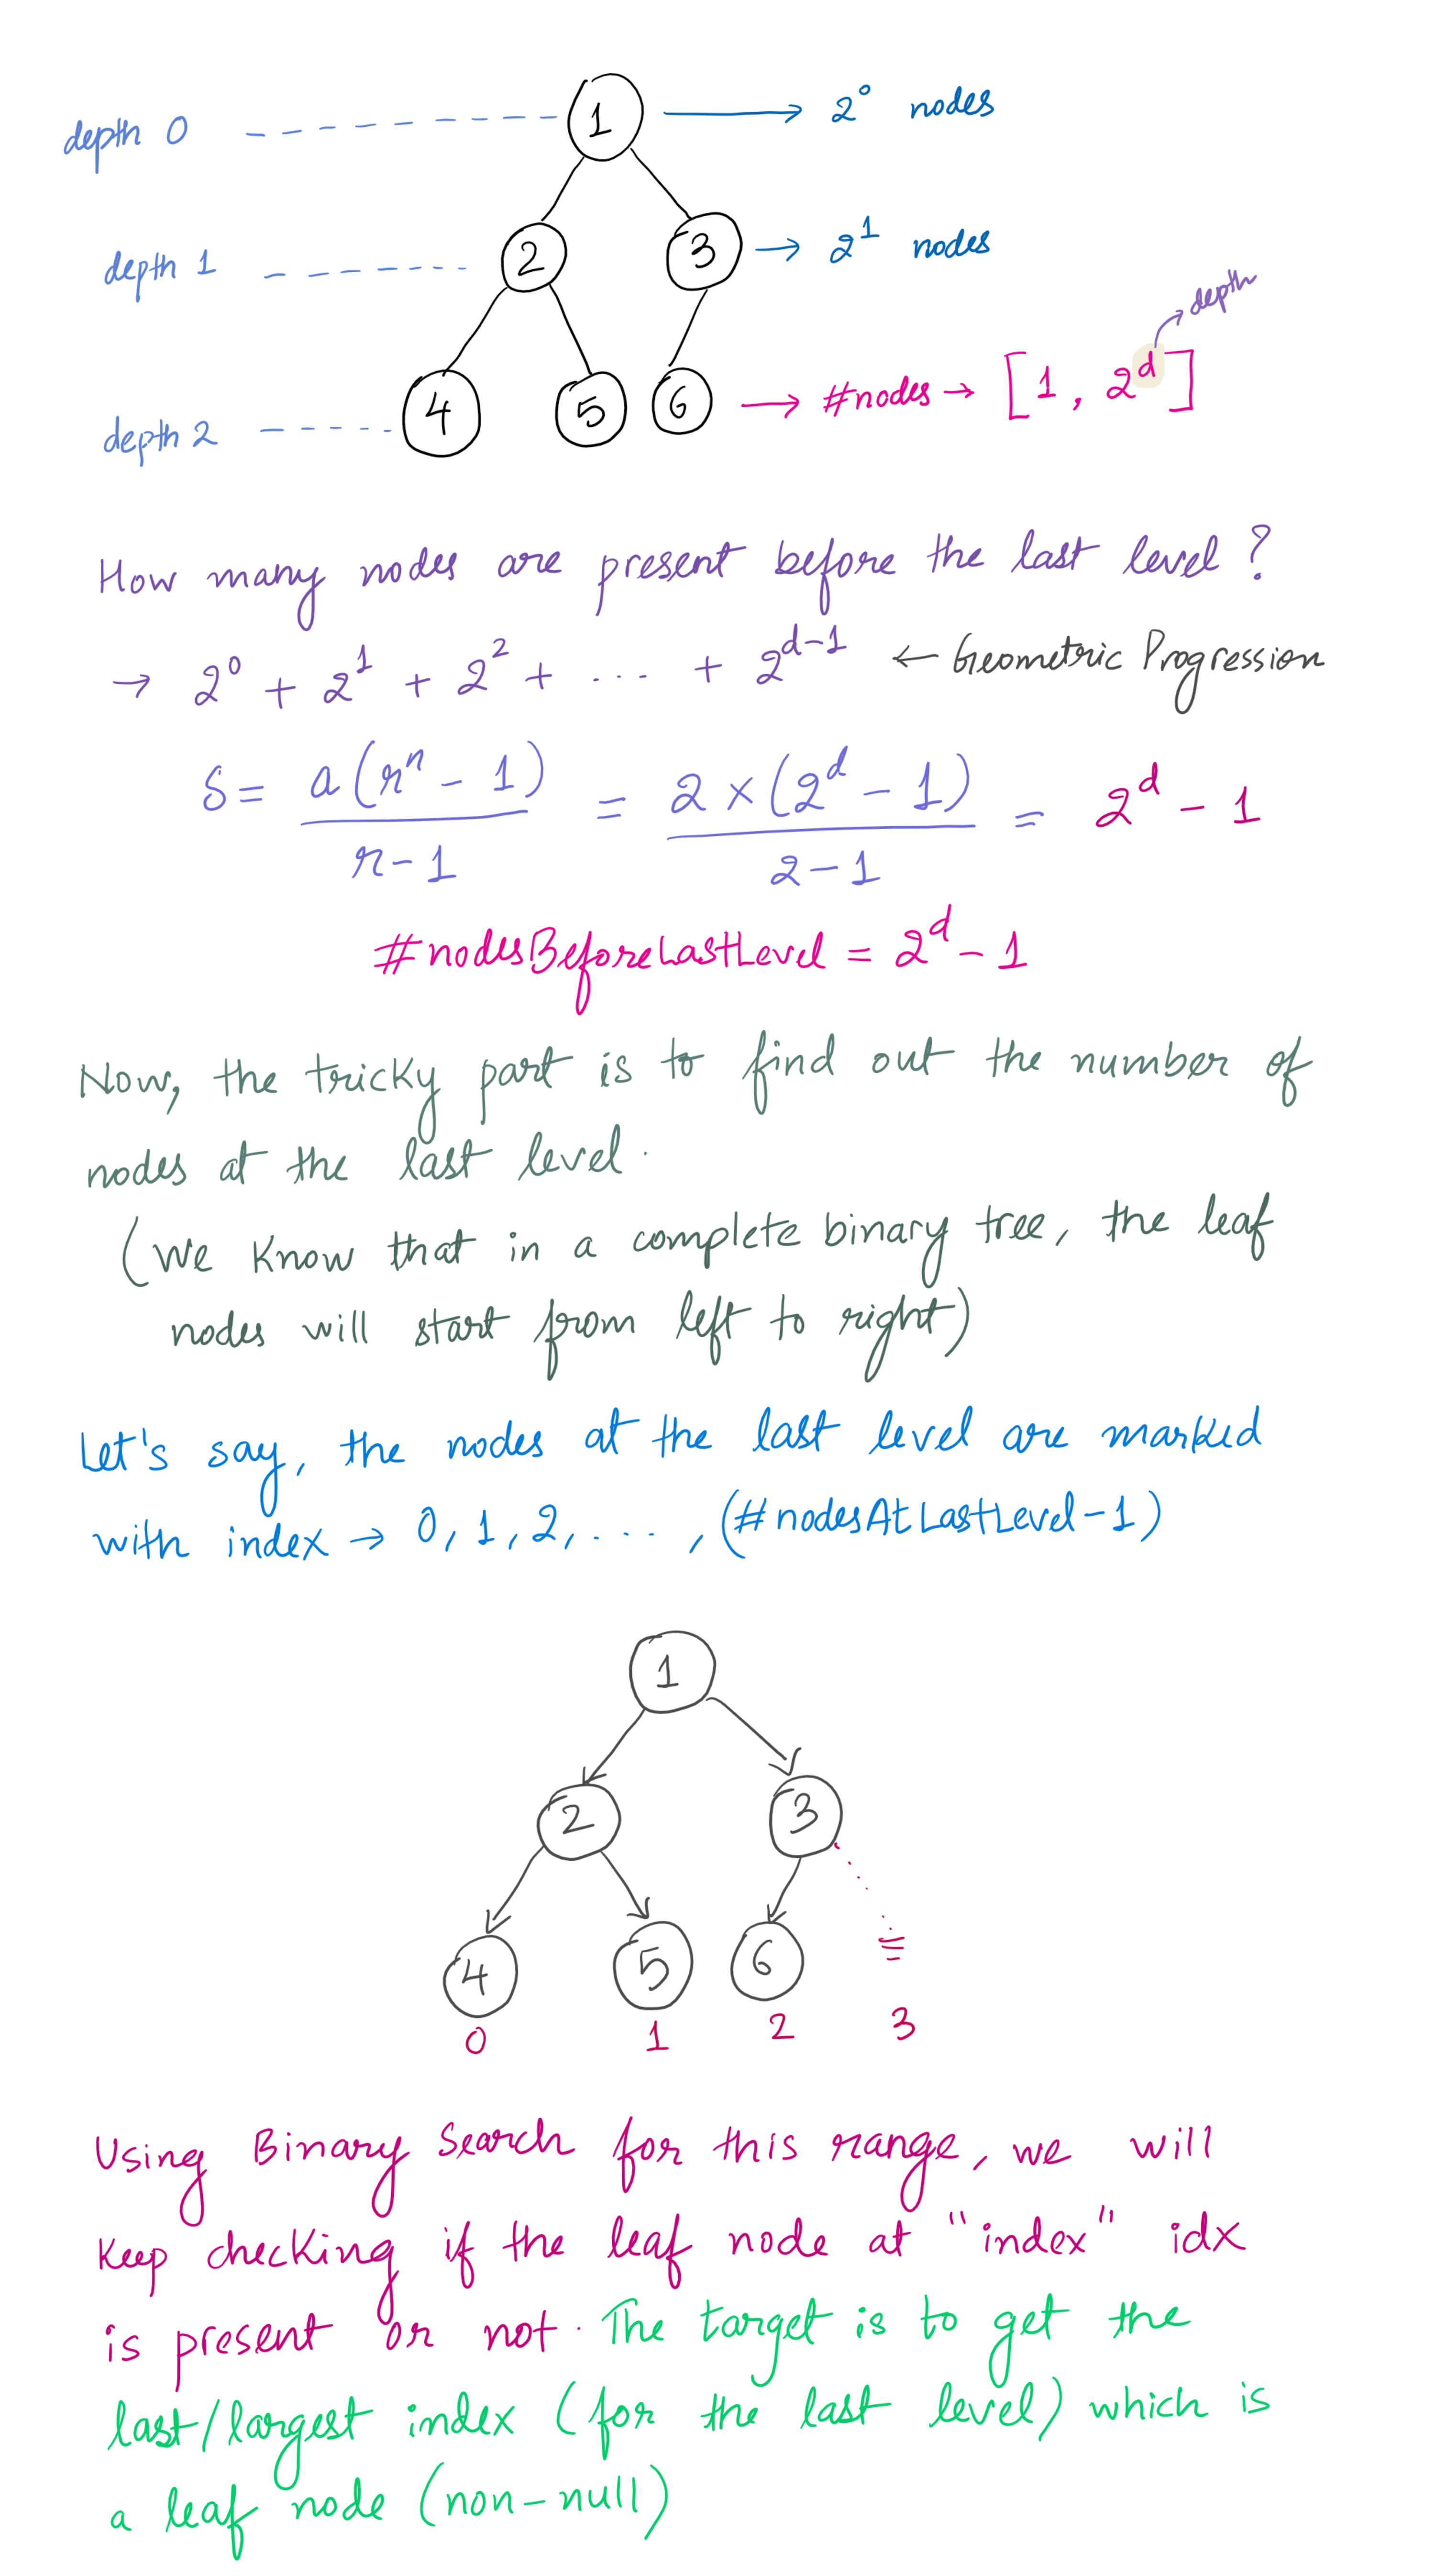 depth 0 1 → 2⁰ nodes
depth 1 2 3 → 2¹ nodes
depth
depth 2 4 5 6 → #nodes → [1, 2ᵈ]
How many nodes are present before the last level?
→ 2⁰ + 2¹ + 2² + ... + 2ᵈ⁻¹ ← Geometric Progression
S = a(rⁿ - 1) / r - 1 = 2 × (2ᵈ - 1) / 2 - 1 = 2ᵈ - 1
#nodesBeforeLastLevel = 2ᵈ - 1
Now, the tricky part is to find out the number of
nodes at the last level.
(We know that in a complete binary tree, the leaf
nodes will start from left to right)
Let's say, the nodes at the last level are marked
with index → 0, 1, 2, ..., (#nodesAtLastLevel-1)
1
2 3
4 5 6
0 1 2 3
Using Binary Search for this range, we will
keep checking if the leaf node at "index" idx
is present or not. The target is to get the
last/largest index (for the last level) which is
a leaf node (non-null)